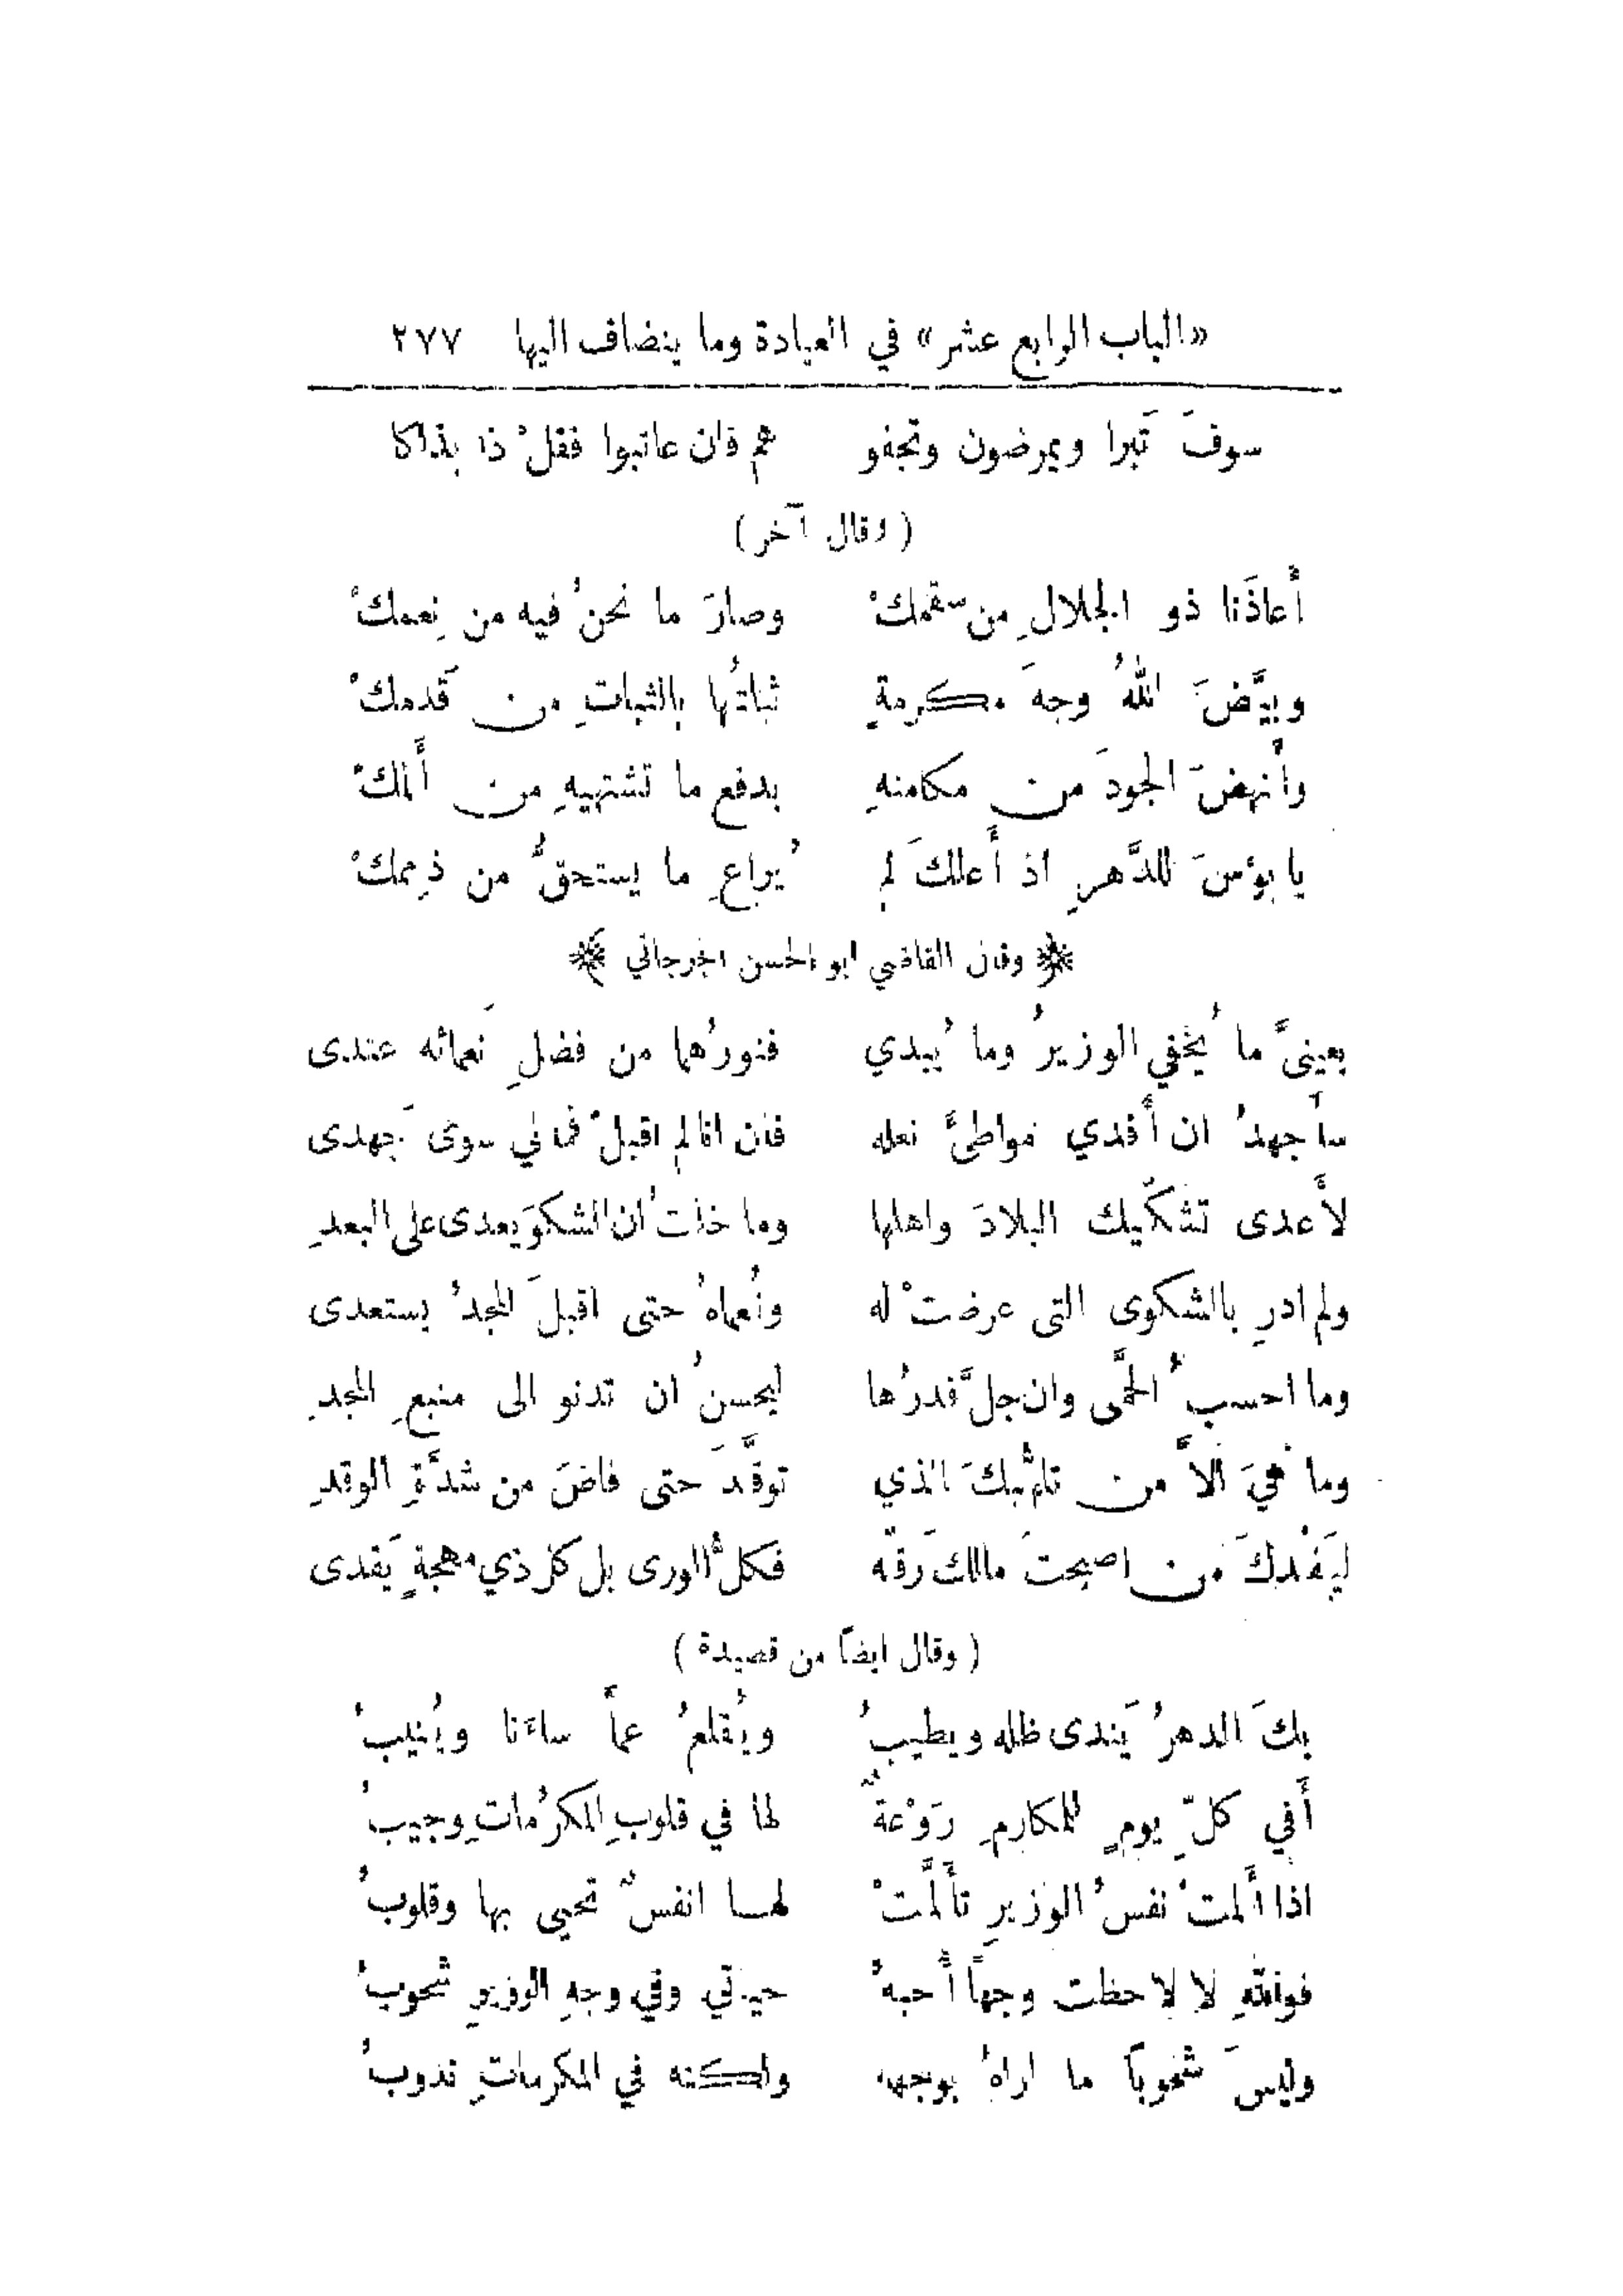 «الباب الرابع عشر» في العيادة وما ينضاف اليها ٢٧٧
سوفَ تَبرا ويمرضون وتجفو هم فان عاتبوا فقلْ ذا بذاكا
( وقال آخر )
أَعاذَنا ذو الجلالِ من سقمكْ وصارَ ما نحنُ فيه من نِعمكْ
وبيَّضَ اللهُ وجهَ مكرمةٍ ثباتُها بالثباتِ من قَدمكْ
وأَنهضَ الجودَ من مكامنهِ بدفع ما تشتهيهِ من أَلمكْ
يا بؤسَ للدَّهرِ اذ أَعلكَ لم يُراعِ ما يستحقُّ من ذِممكْ
﴿ وقال القاضي ابو الحسن الجرجاني ﴾
بعينيَّ ما يُخفي الوزيرُ وما يُبدي فنورُهما من فضلِ نَعمائه عندى
سأَجهدُ ان أَفدي مواطئَ نعله فان انا لم اقبلْ فما لي سوى جَهدى
لأَعدى تشكّيك البلادَ واهلها وما خلتُ ان الشكوَ يعدى على البعدِ
ولم ادرِ بالشكوى التى عرضتْ له ونُعماهُ حتى اقبلَ المجدُ يستعدى
وما احسبُ الحمَّى وان جلَّ قدرُها ليحسنُ ان تدنو الى منبعِ المجدِ
وما هيَ الاَّ من تلهُّبكَ الذي توقَّدَ حتى فاضَ من شدَّةِ الوقدِ
ليَفْدِكَ من اصبحتَ مالكَ رَقّه فكلُّ الورى بل كل ذي مهجةٍ يَفدى
( وقال ايضاً من قصيدة )
بكَ الدهرُ يَندى ظله ويطيبُ ويُقلعُ عماَّ ساءَنا ويُنيبُ
أَفي كلّ يومٍ للمكارمِ رَوْعةٌ لها في قلوبِ المكرُماتِ وجيبُ
اذا أَلمتْ نفسُ الوزيرِ تأَلَّمتْ لهـا انفسٌ تحيى بها وقلوبُ
فوالله لا لاحظت وجهاً أُحبهُ حياتي وفي وجهِ الوزيرِ شحوبُ
وليسَ شحوباً ما اراهُ بوجهه ولكنه في المكرماتِ ندوبُ